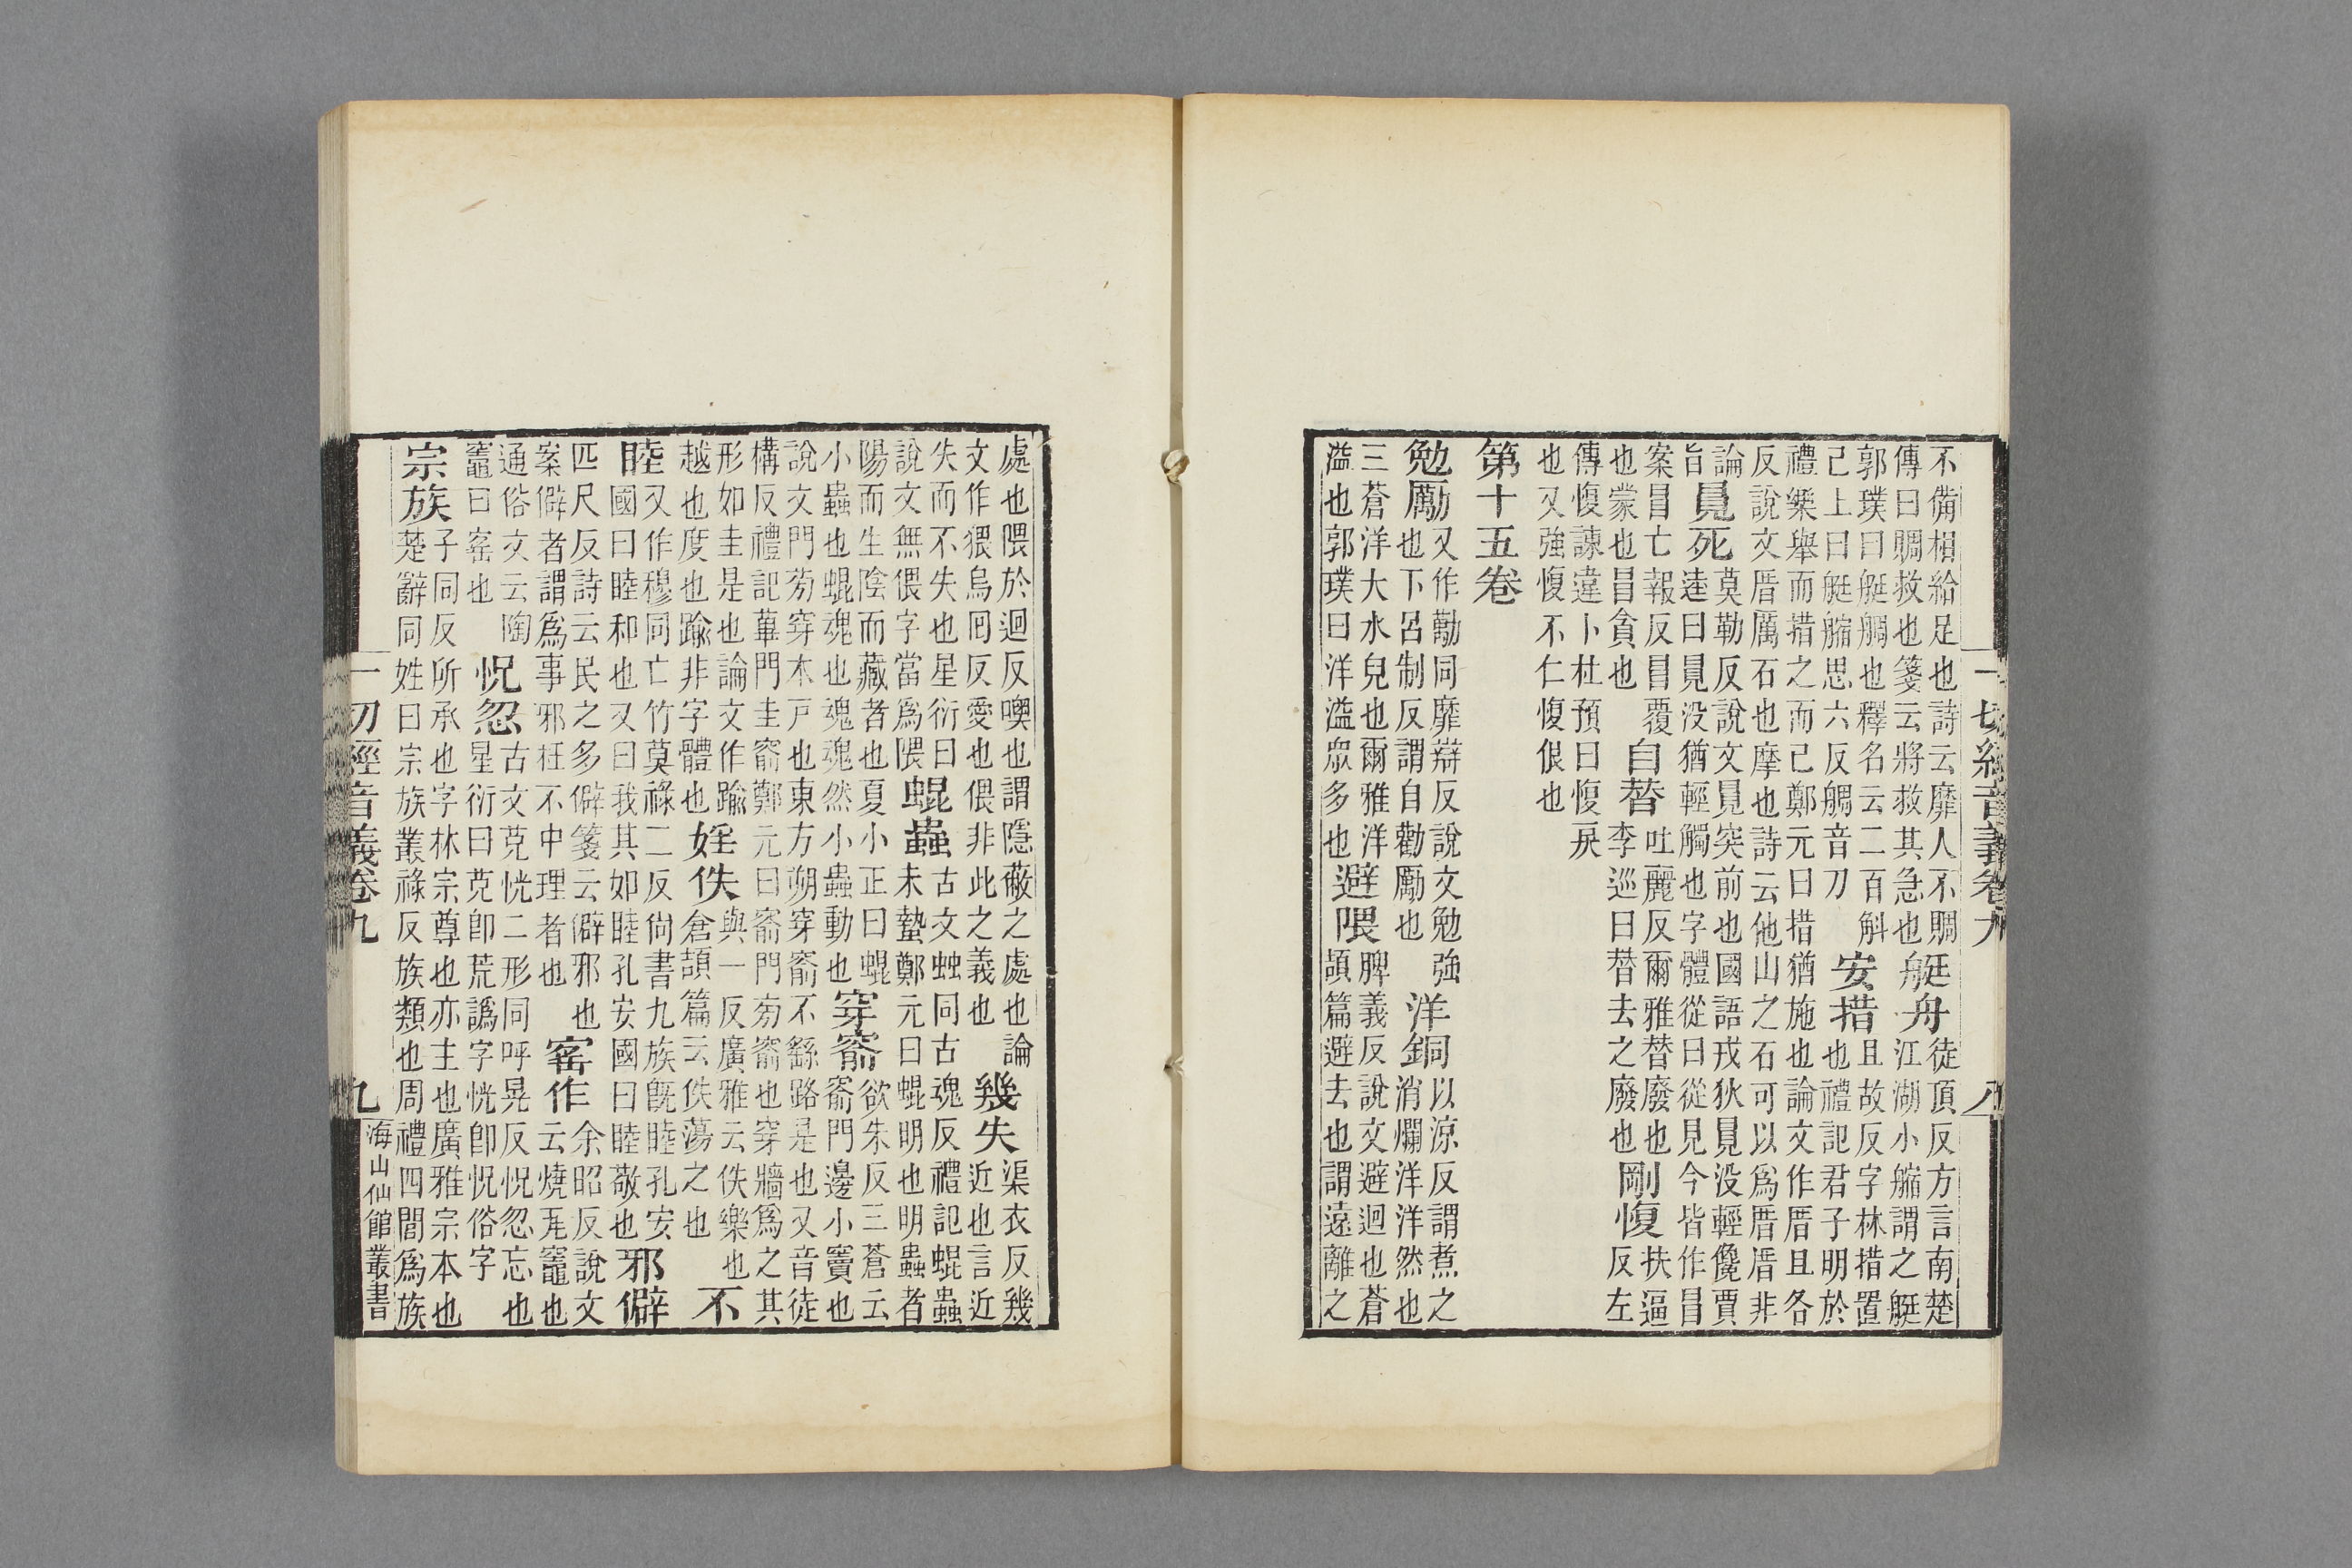 一切經音義卷九
八
不備相給足也詩云靡人不賙
傳曰賙救也箋云將救其急也
艇舟
徒頂反方言南楚
江湖小䑿謂之艇
郭璞曰艇䑠也釋名云二百斛
已上曰艇䑿思六反䑠音刀
安措
且故反字林措置
也禮記君子明於
禮樂舉而措之而已鄭元曰措猶施也論文作厝且各
反說文厝厲石也摩也詩云他山之石可以爲厝厝非
論
旨
冒死
莫勒反說文冒突前也國語戎狄冒没輕儳賈
逵曰冒没猶輕觸也字體從曰從見今皆作冒
案冒亡報反冒覆
也蒙也冒貪也
自替
吐麗反爾雅替廢也
李巡曰替去之廢也
剛愎
扶逼
反左
傳愎諫違卜杜預曰愎戾
也又強愎不仁愎佷也
第十五卷
勉勵
又作勸同靡辯反說文勉強
也下呂制反謂自勸勵也
洋銅
以涼反謂煮之
消爛洋洋然也
三蒼洋大水皃也爾雅洋
溢也郭璞曰洋溢眾多也
避隈
脾義反說文避迴也蒼
頡篇避去也謂遠離之
處也隈於迴反噢也謂隱蔽之處也論
文作猥烏囘反愛也偎非此之義也
幾失
渠衣反幾
近也言近
失而不失也星衍曰
說文無偎字當爲隈
蜫蟲
古文䖵同古魂反禮記蜫蟲
未蟄鄭元曰蜫明也明蟲者
陽而生陰而藏者也夏小正曰蜫
小蟲也蜫魂也魂魂然小蟲動也
穿窬
欲朱反三蒼云
窬門邊小竇也
說文門旁穿木戸也東方朔穿窬不繇路是也又音徒
構反禮記蓽門圭窬鄭元曰窬門旁窬也穿牆爲之其
形如圭是也論文作踰
越也度也踰非字體也
婬佚
與一反廣雅云佚樂也
倉頡篇云佚蕩之也
不
睦
又作穆同亡竹莫祿二反尙書九族旣睦孔安
國曰睦和也又曰我其如睦孔安國曰睦敬也
邪僻
匹尺反詩云民之多僻箋云僻邪也
案僻者謂爲事邪枉不中理者也
窰作
余昭反說文
云燒瓦竈也
通俗文云陶
竈曰窰也
怳忽
古文茫恍二形同呼晃反怳忽忘也
星衍曰茫卽荒譌字恍卽怳俗字
宗族
子同反所承也字林宗尊也亦主也廣雅宗本也
楚辭同姓曰宗族叢祿反族類也周禮四閭爲族
一切經音義卷九
九
海山仙館叢書